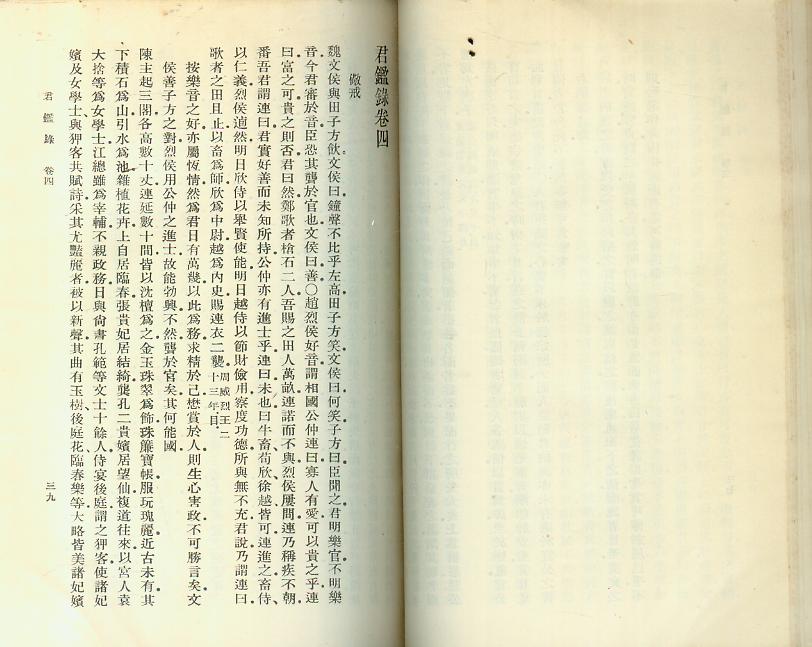 君鑑錄卷四
儆戒
魏文侯與田子方飲。文侯曰。鐘聲不比乎。左高。田子方笑。文侯曰。何笑。子方曰。臣聞之。君明樂官。不明樂
音。今君審於音。臣恐其聾於官也。文侯曰。善。○趙烈侯好音。謂相國公仲連曰。寡人有愛。可以貴之乎。連
曰。富之可。貴之則否。君曰。然。鄭歌者槍石二人。吾賜之田人萬畝。連諾而不與。烈侯屢問。連乃稱疾不朝。
番吾君謂連曰。君實好善而未知所持。公仲亦有進士乎。連曰。未也。曰。牛畜、荀欣、徐越、皆可。連進之。畜侍、
以仁義。烈侯逌然。明日欣侍以舉賢使能。明日越侍以節財儉用。察度功德。所與無不充。君說。乃謂連曰。
歌者之田且止。以畜為師。欣為中尉。越為內史。賜連衣二襲。周威烈王二十三年目。
按樂音之好。亦屬恆情。然為君日有萬幾。以此為務。求精於己。懋賞於人。則生心害政。不可勝言矣。文
侯善子方之對。烈侯用公仲之進士。故能勃興。不然。聾於官矣。其何能國。
陳主起三閣。各高數十丈。連延數十間。皆以沈檀為之。金玉珠翠為飾。珠簾寶帳。服玩瑰麗。近古未有。其
下積石為山。引水為池。雜植花卉。上自居臨春。張貴妃居結綺。龔孔二貴嬪居望仙。複道往來。以宮人袁
大捨等為女學士。江總雖為宰輔。不親政務。日與尙書孔範等文士十餘人。侍宴後庭。謂之狎客。使諸妃
嬪及女學士。與狎客共賦詩。采其尤豔麗者。被以新聲。其曲有玉樹、後庭花、臨春樂等。大略皆美諸妃嬪
君鑑錄 卷四
三九